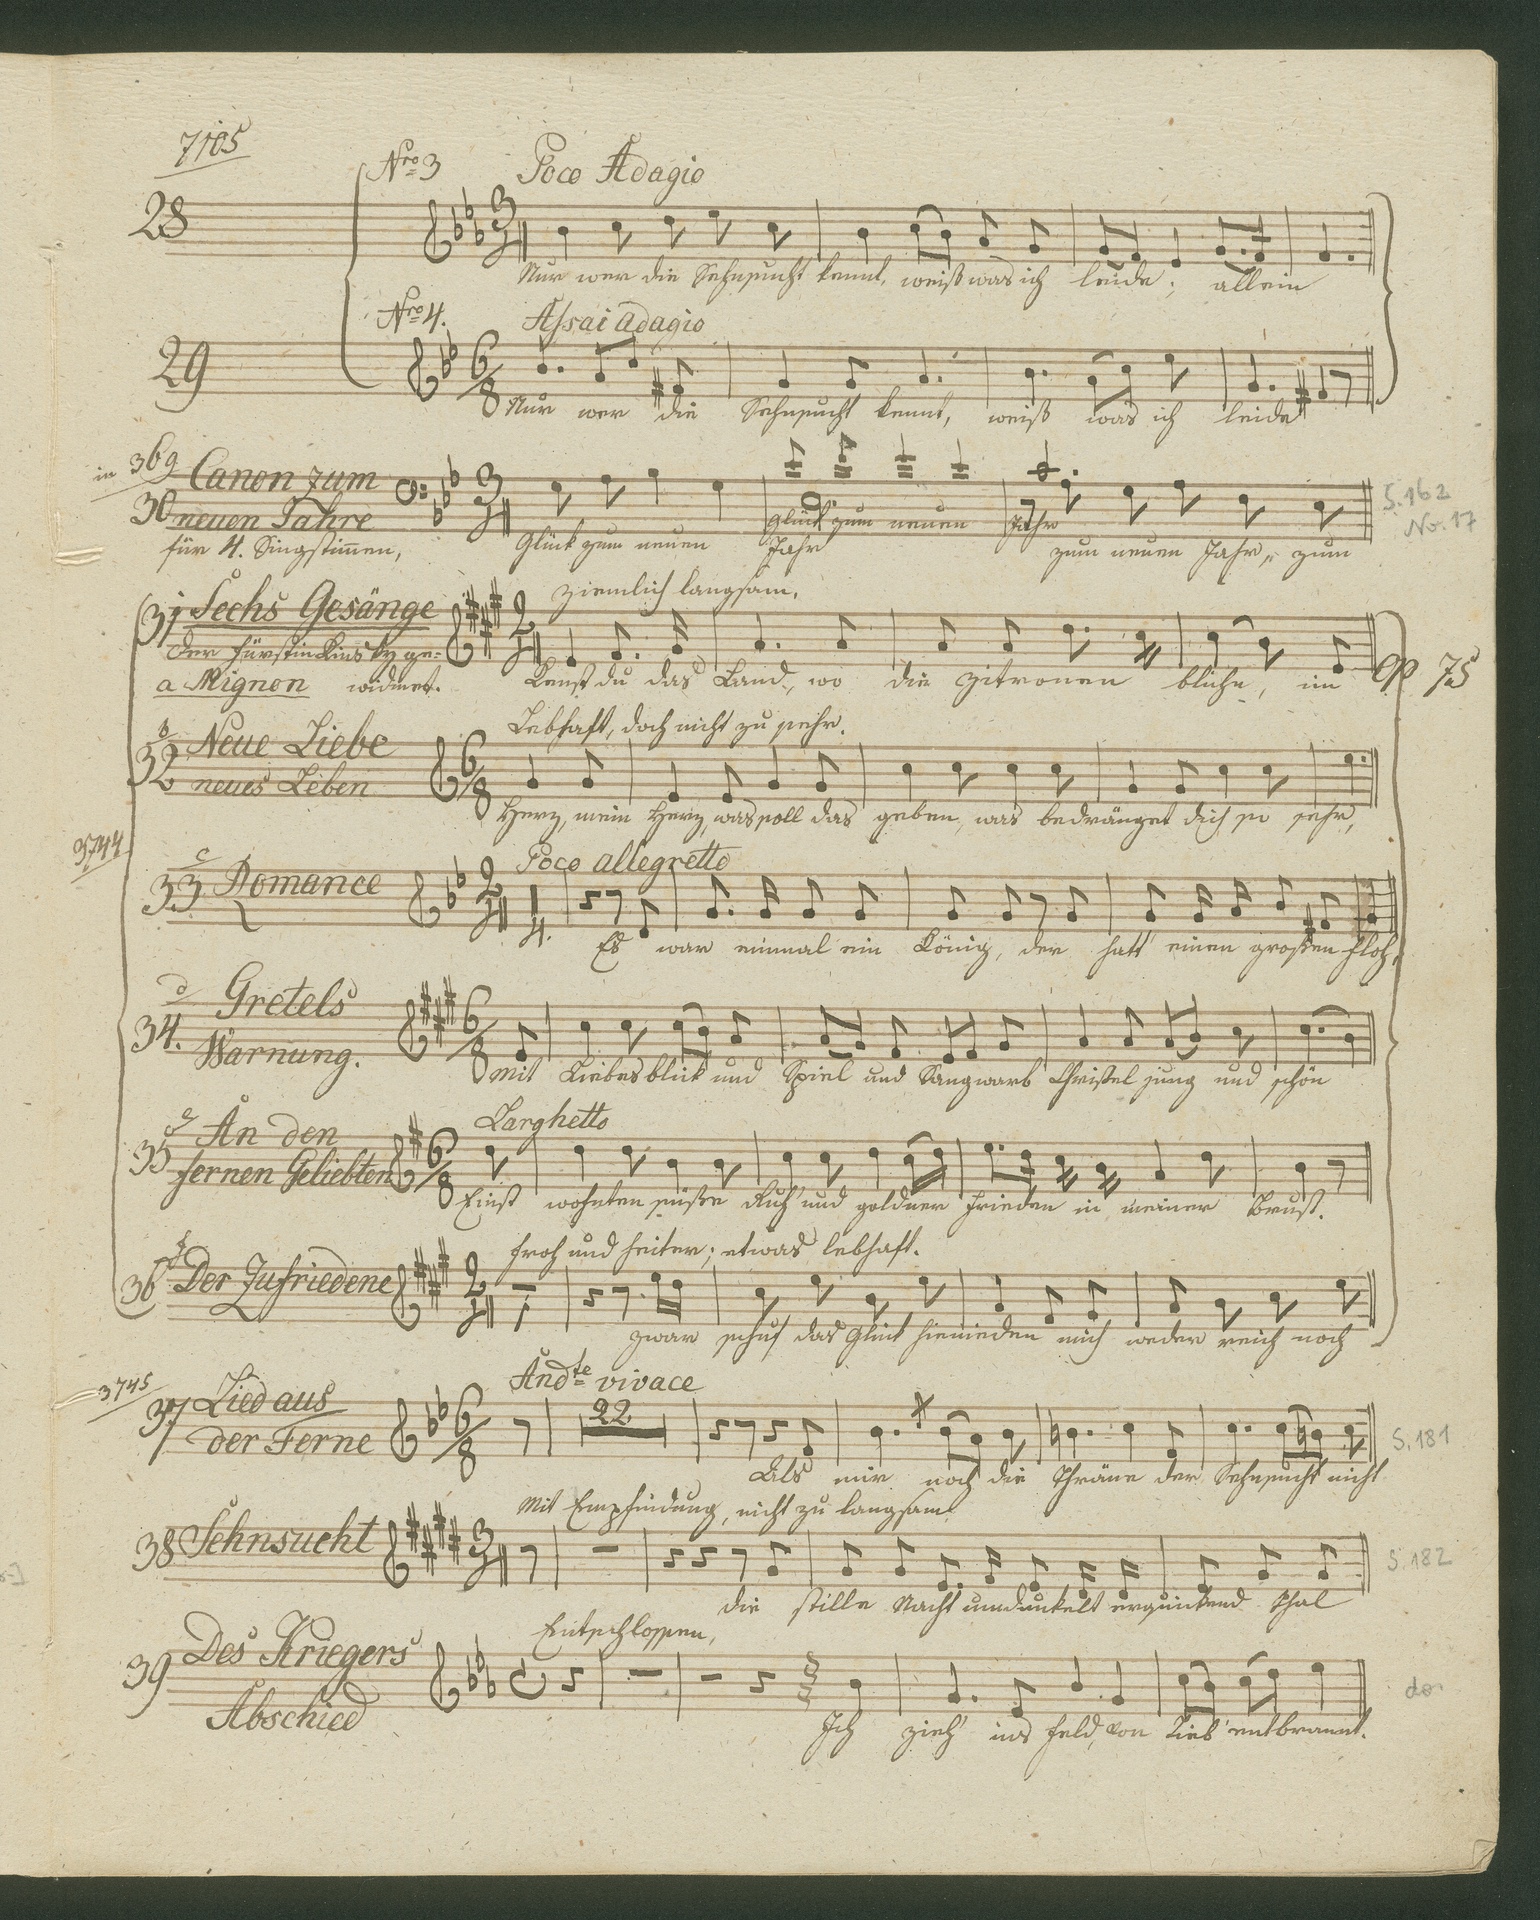 7105
Nro 3 Poco Adagio
28
Nur wer die Sehnsucht kennt, weiß was ich leide; allein
Nro 4. Assai adagio
29
Nur wer die Sehnsucht kennt, weiß was ich leide
in 369
30 Canon zum
neuen Jahre
für 4. Singstimmen,
Glück zum neuen Jahr
Glück zum neuen Jahr zum neuen Jahr, zum
S. 162
No. 17
31 Sechs Gesänge
der Fürstin Kinsky ge=
widmet.
a Mignon
ziemlich langsam.
Kenst du das Land, wo die Zitronen blühn, im
Op 75
b
32 Neue Liebe
neues Leben
Lebhaft, doch nicht zu sehr.
Herz, mein Herz, was soll das geben, was bedränget dich so sehr,
3744
c
33 Romance
Poco allegretto
4.
Es war einmal ein König, der hatt' einen großen Floh,
d
34. Gretels
Warnung.
Mit Liebesblick und Spiel und Sang warb Christel jung und schön
e
35 An den
fernen Geliebten
Larghetto
Einst wohnten süße Ruh' und goldner Frieden in meiner Brust.
f
36 Der Zufriedene
froh und heiter; etwas lebhaft.
zwar schuf das Glück hienieden mich weder reich noch
3745
37 Lied aus
der Ferne
Andte vivace
22
Als mir noch die Thräne der Sehnsucht nicht
S. 181
38 Sehnsucht
Mit Empfindung, nicht zu langsam.
die stille Nacht umdunkelt erquickend Thal
S. 182
39 Des Kriegers
Abschied
Entschlossen,
Ich zieh' ins Feld, von Lieb' entbrannt.
do.